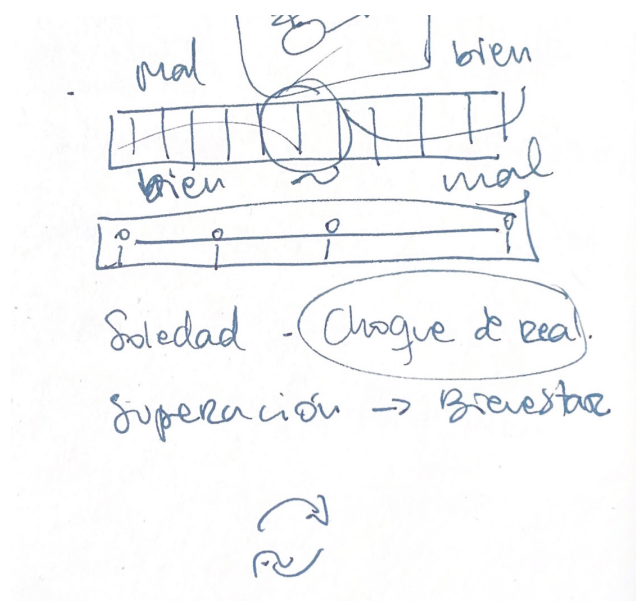 mal bien
bien ~ mal
Soledad - Choque de real.
Superación → Bienestar